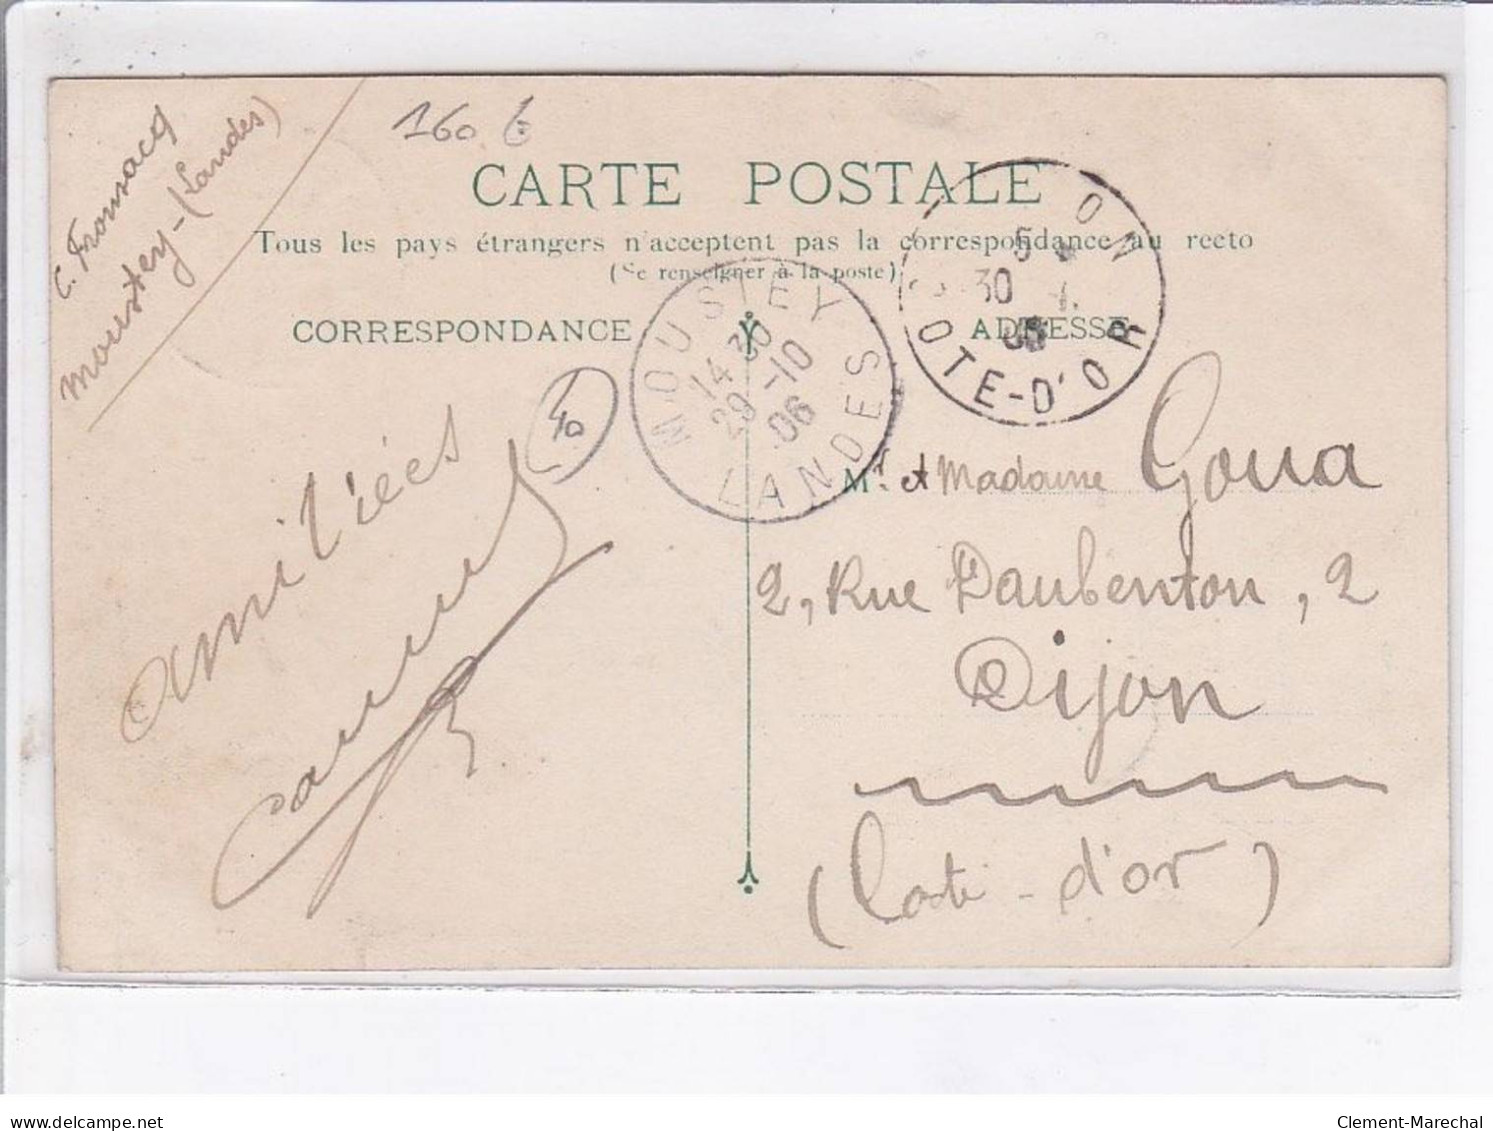 C. Fronsacq
Moustey-(Landes)
160 €
CARTE POSTALE
Tous les pays étrangers n'acceptent pas la correspondance au recto
(Se renseigner à la poste)
CORRESPONDANCE
ADRESSE
MOUSTEY
14 30
29-10
06
LANDES
ON
5
30
06
OTE-D'OR
40
Amitiées
Mr et Madame Goua
2, Rue Daubenton, 2
Dijon
(Cote-d'or)
delcampe.net
Clement-Marechal